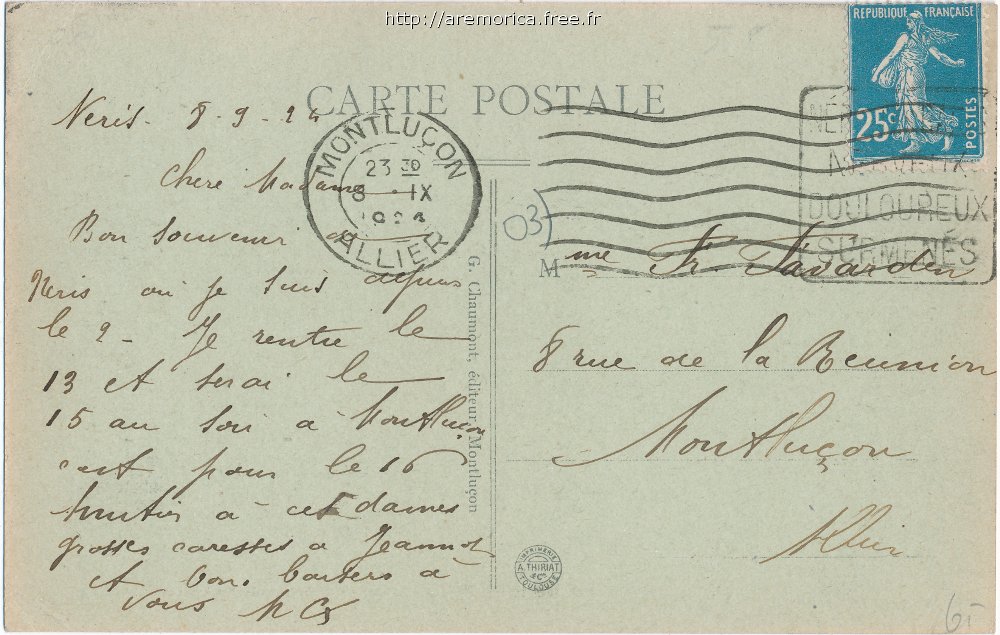 http://aremorica.free.fr
RÉPUBLIQUE FRANÇAISE
25c
POSTES
CARTE POSTALE
MONTLUÇON
23 30
8 IX
ALLIER
DOULOUREUX
SURMENÉS
03)
Neris 8-9-24
Chere Madame
Bon souvenir
Neris ou je suis depuis
le 2 - Je rentre le
13 et serai le
15 au soir à Montluçon
pour le 16
à ces dames
grosses caresses a Jeannot
et bons baisers à
vous
G. Chaumont, éditeur Montluçon
Mme Fr. Tavarden
8 rue de la Reunion
Montluçon
Allier
IMPRIMERIE
A. THIRIAT
& Cie
TOULOUSE